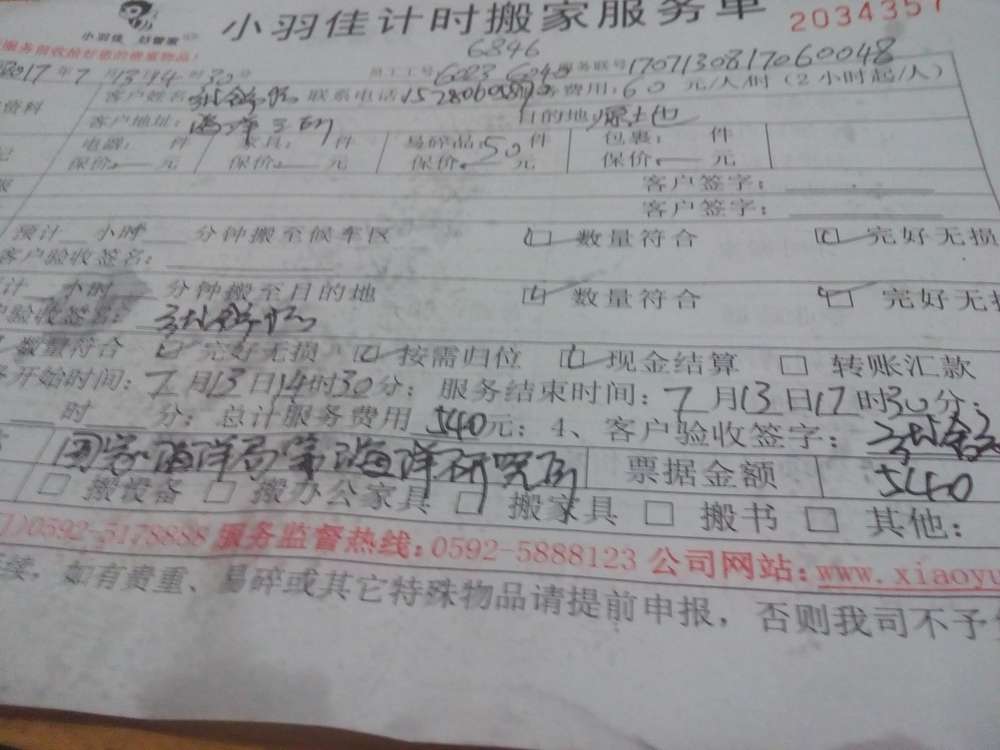 小羽佳 计时搬家服务单 2034357
6846
2017年7月13日14时30分 员工工号6023 6040 服务联号170713081706 0048
资料 客户姓名: 联系电话 费用:60元/人/时(2小时起/人)
客户地址:海洋三所 目的地
电器: 件 家具: 件 易碎品: 50件 包裹: 件
保价 元 保价 元 保价 元 保价 元
客户签字:
客户签字:
预计 小时 分钟搬至候车区 数量符合 完好无损
客户验收签名:
计 小时 分钟搬至目的地 数量符合 完好无损
户验收签名:
数量符合 完好无损 按需归位 现金结算 转账汇款
开始时间:7月13日14时30分;服务结束时间:7月13日17时30分;
时 分;总计服务费用540元;4、客户验收签字:
国家海洋局第三海洋研究所 票据金额 540
搬设备 搬办公家具 搬家具 搬书 其他:
)0592-5178888 服务监督热线:0592-5888123 公司网站:www.xiaoyu
续,如有贵重、易碎或其它特殊物品请提前申报,否则我司不予